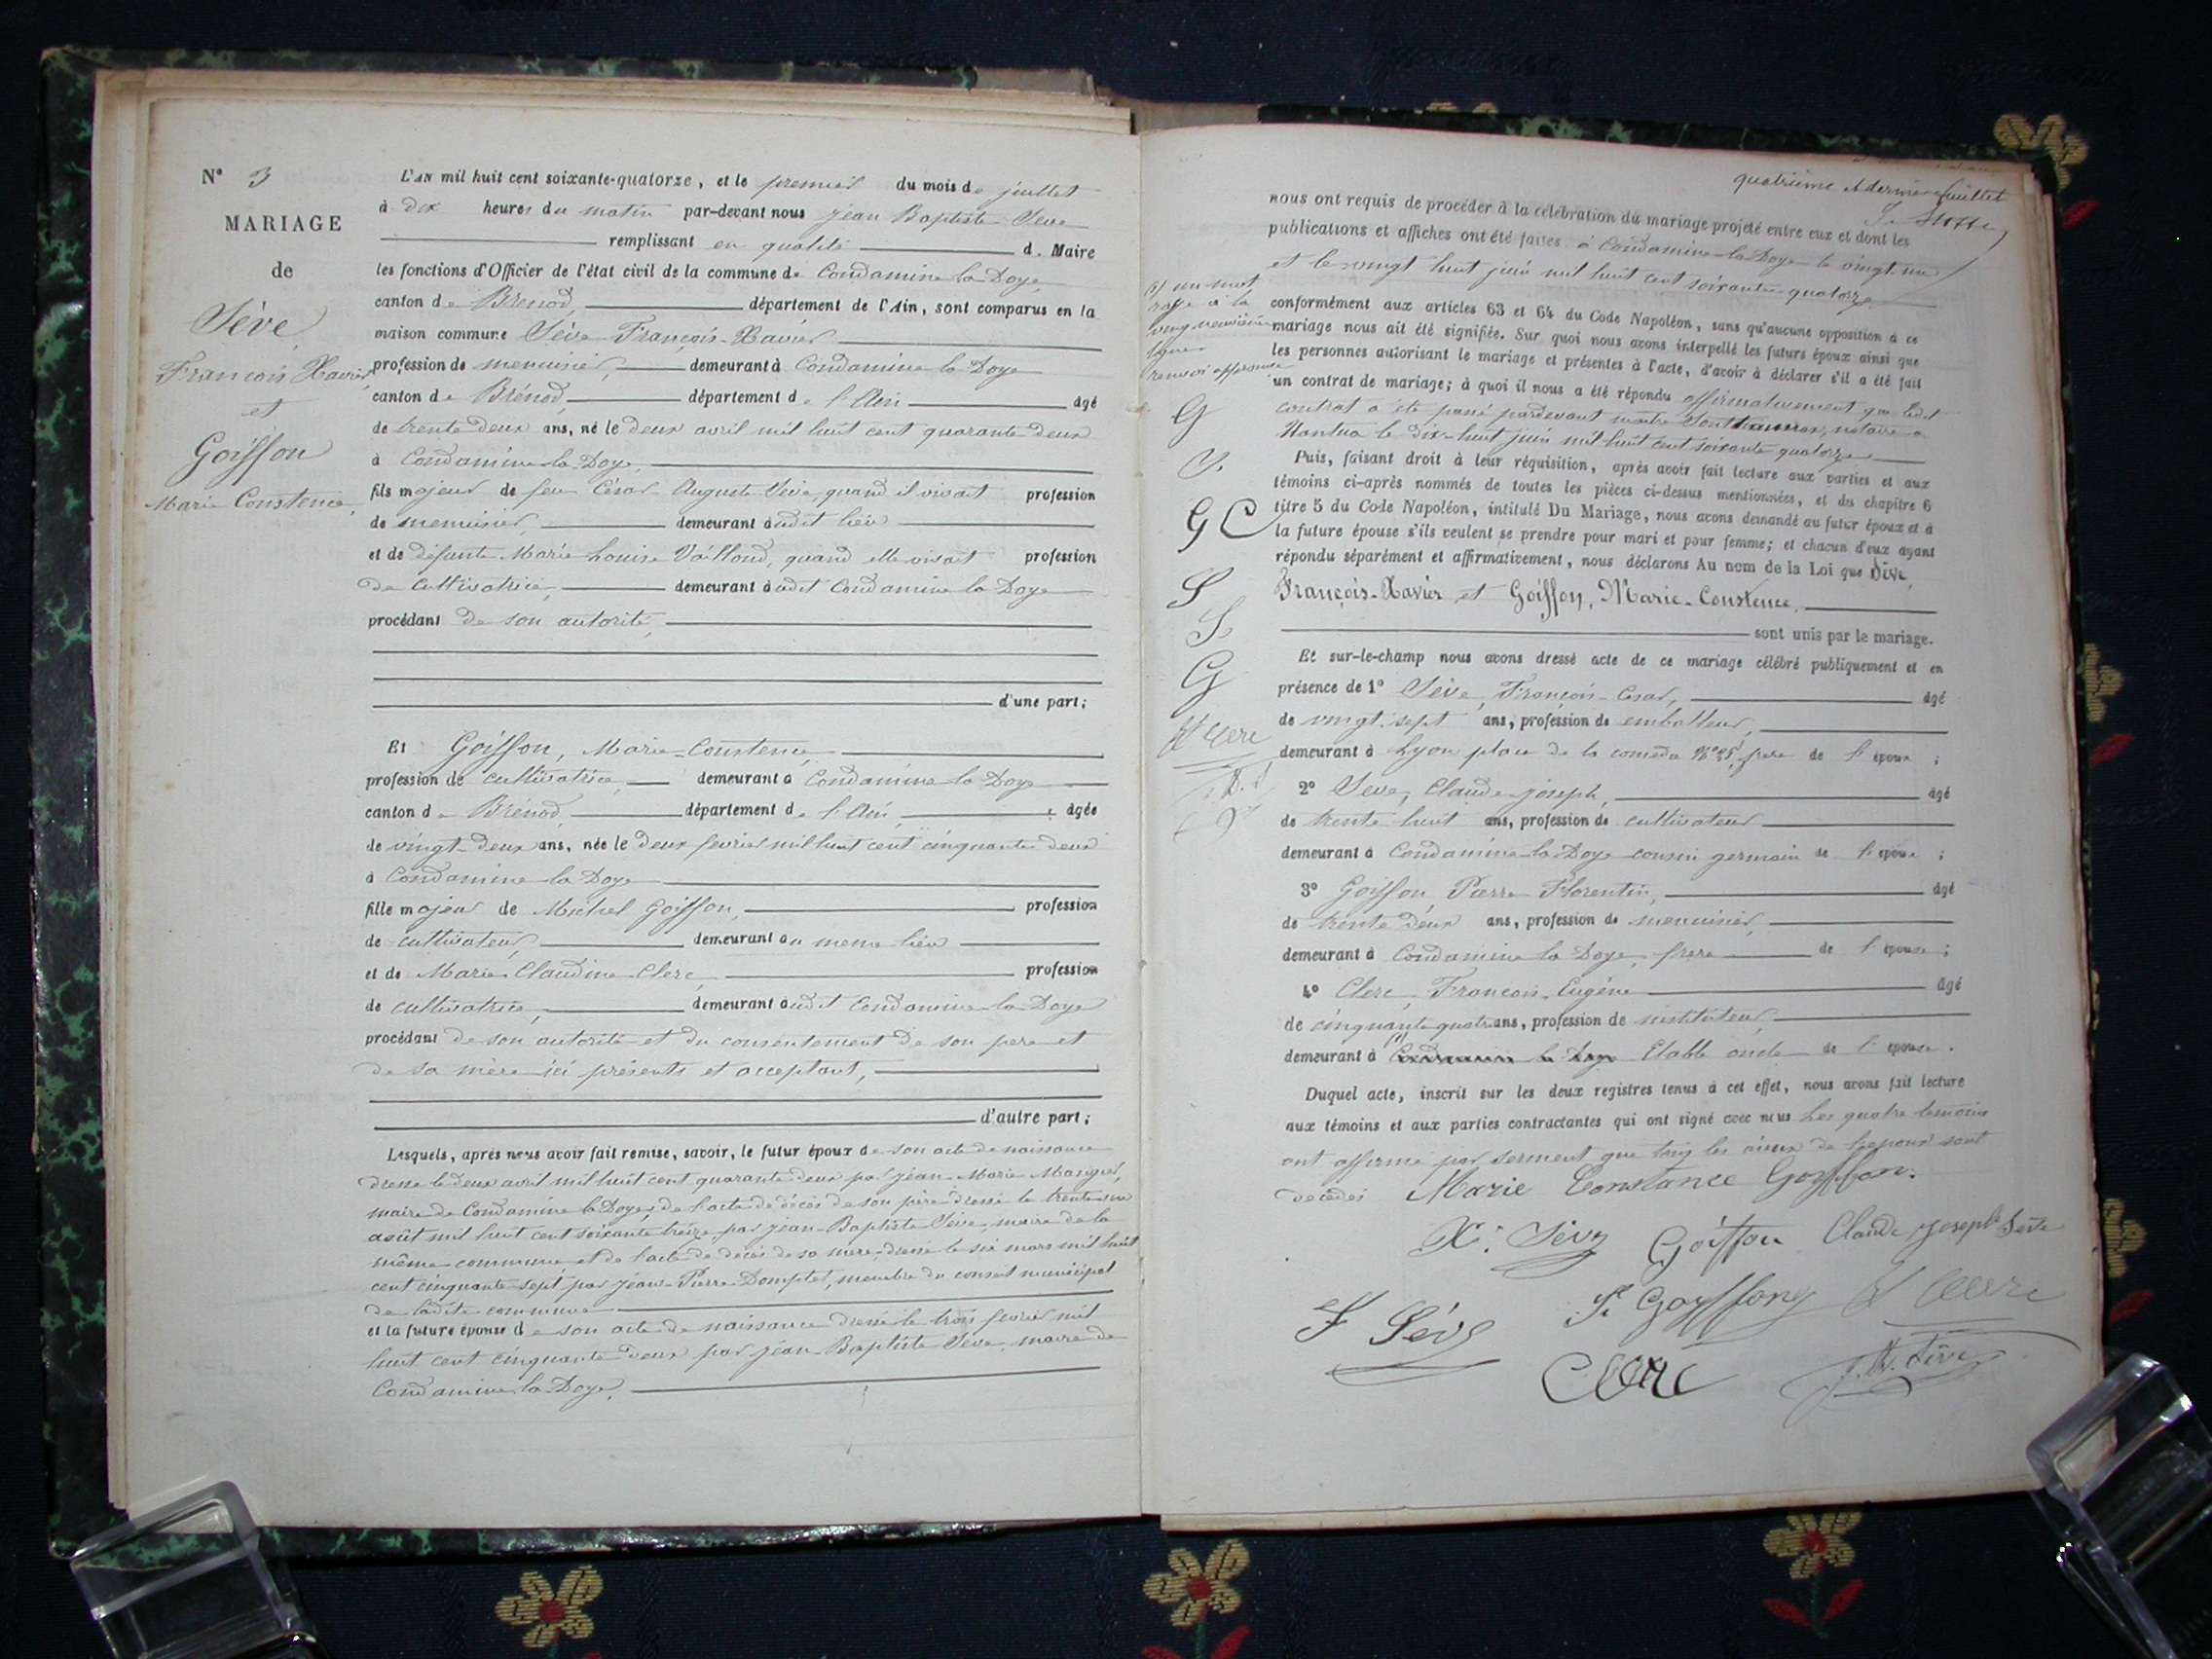 N° 3
MARIAGE
de
Sève
François Xavier
et
Goiffon
Marie Constence
L'AN mil huit cent soixante-quatorze, et le premier du mois de juillet
à dix heures du matin par-devant nous jean Baptiste Sève
remplissant en qualité de Maire
les fonctions d'Officier de l'état civil de la commune de Condamine la Doye
canton de Brénod, département de l'Ain, sont comparus en la
maison commune Sève François-Xavier
profession de menuisier, demeurant à Condamine la Doye
canton de Brénod, département de l'Ain âgé
de trente deux ans, né le deux avril mil huit cent quarante deux
à Condamine-la-Doye,
fils majeur de feu César Auguste Sève, quand il vivait profession
de menuisier, demeurant audit lieu
et de défunte Marie Louise Vailloud, quand elle vivait profession
de cultivatrice, demeurant audit Condamine la Doye
procédant de son autorité,
d'une part;
Et Goiffon, Marie-Constence,
profession de cultivatrice, demeurant à Condamine la Doye
canton de Brénod, département de l'Ain, âgée
de vingt-deux ans, née le deux fevrier mil huit cent cinquante deux
à Condamine la Doye
fille majeur de Michel Goiffon, profession
de cultivateur, demeurant au meme lieu
et de Marie Claudine Clerc, profession
de cultivatrice, demeurant audit Condamine la Doye
procédant de son autorité et du consentement de son pere et
de sa mère ici présents et acceptant,
d'autre part;
Lesquels, après nous avoir fait remise, savoir, le futur époux de son acte de naissance
dressé le deux avril mil huit cent quarante deux par jean-Marie
maire de Condamine la Doye, de l'acte de décès de son père dressé le trente un
août mil huit cent soixante treize par jean-Baptiste Sève, maire de la
même commune et de l'acte de décès de sa mère, dressé le six mars mil huit
cent cinquante sept par jean-Pierre Domptet, membre du conseil municipal
de ladite commune
et la future épouse de son acte de naissance dressé le trois fevrier mil
huit cent cinquante deux par jean Baptiste Sève, maire de
Condamine la Doye,
quatrième et dernier feuillet
nous ont requis de procéder à la célébration du mariage projeté entre eux et dont les
publications et affiches ont été faites à Condamine-la-Doye le vingt un
et le vingt huit juin mil huit cent soixante-quatorze
(1) un mot
rayé à la
vingt neuvième
ligne
renvoi approuvé
conformément aux articles 63 et 64 du Code Napoléon, sans qu'aucune opposition à ce
mariage nous ait été signifiée. Sur quoi nous avons interpellé les futurs époux ainsi que
les personnes autorisant le mariage et présentes à l'acte, d'avoir à déclarer s'il a été fait
un contrat de mariage; à quoi il nous a été répondu affirmativement que ledit
contrat a été passé pardevant maitre notaire a
Nantua le dix-huit juin mil huit cent soixante quatorze
Puis, faisant droit à leur réquisition, après avoir fait lecture aux parties et aux
témoins ci-après nommés de toutes les pièces ci-dessus mentionnées, et du chapitre 6
titre 5 du Code Napoléon, intitulé Du Mariage, nous avons demandé au futur époux et à
la future épouse s'ils veulent se prendre pour mari et pour femme; et chacun d'eux ayant
répondu séparément et affirmativement, nous déclarons Au nom de la Loi que Sève,
François-Xavier et Goiffon, Marie-Constence,
sont unis par le mariage.
Et sur-le-champ nous avons dressé acte de ce mariage célébré publiquement et en
présence de 1° Sève, François-Cesar, âgé
de vingt-sept ans, profession de emballeur,
demeurant à Lyon place de la comeda N° 25, frere de l'époux ;
2° Seve, Claude-joseph, âgé
de trente huit ans, profession de cultivateur
demeurant à Condamine-la-Doye cousin germain de l'époux ;
3° Goiffon, Pierre Florentin, âgé
de trente deux ans, profession de menuisier,
demeurant à Condamine la Doye, frere de l'épouse ;
4° Clerc, François-Eugène âgé
de cinquante quatre ans, profession de instituteur,
demeurant à (1) Condamine la Doye Etable oncle de l'épouse.
Duquel acte, inscrit sur les deux registres tenus à cet effet, nous avons fait lecture
aux témoins et aux parties contractantes qui ont signé avec nous Les quatre témoins
ont affirmé par serment que tous les aieux de l'epoux sont
décédés
Marie Constance Goiffon.
X. Sève Goiffon Claude joseph Sève
F Sève P. Goyffon F Clerc
Clerc J.B. Sève
G
G C
S
S
G
F Clerc